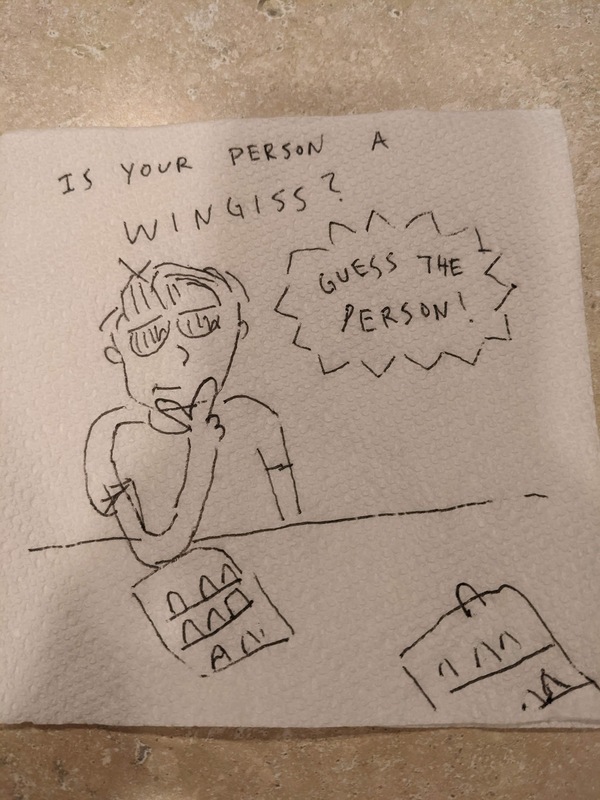 IS YOUR PERSON A
WINGISS?
GUESS THE
PERSON!